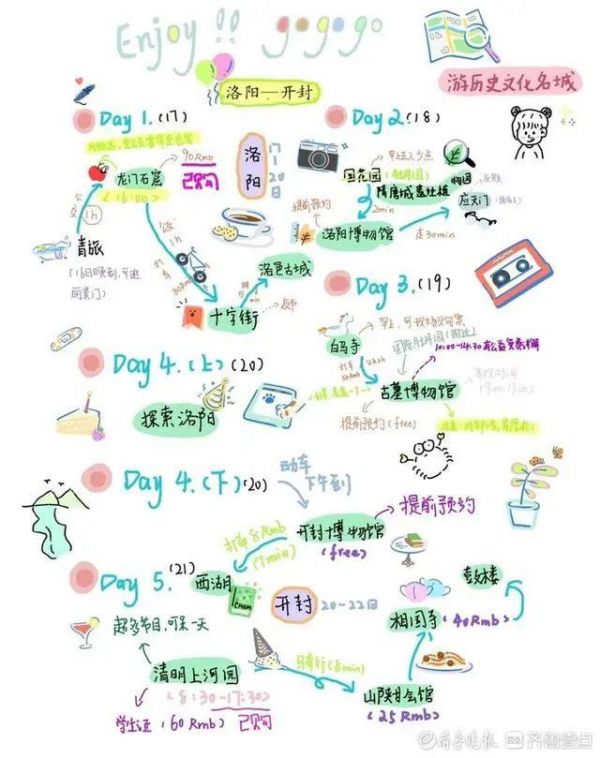 Enjoy!! gogogo
游历史文化名城
洛阳—开封
Day 1.(17)
90Rmb
龙门石窟
已购
(16:00)
1h
青旅
十字街
洛邑古城
洛阳
17-20日
Day 2.(18)
国花园
隋唐城遗址植物园
应天门
2min
提前预约
洛阳博物馆
走30min
Day 3.(19)
白马寺
古墓博物馆
提前预约(free)
Day 4.(上)(20)
探索洛阳
Day 4.(下)(20)
动车
下午到
开封博物馆
(free)
提前预约
打车8Rmb
(7min)
Day 5.(21)
西湖
开封
20-22日
超多节目,可呆一天
清明上河园
(8:30-17:30)
学生证(60Rmb)已购
骑行(8min)
山陕甘会馆
(25Rmb)
相国寺(40Rmb)
齐鲁晚报
齐鲁壹点